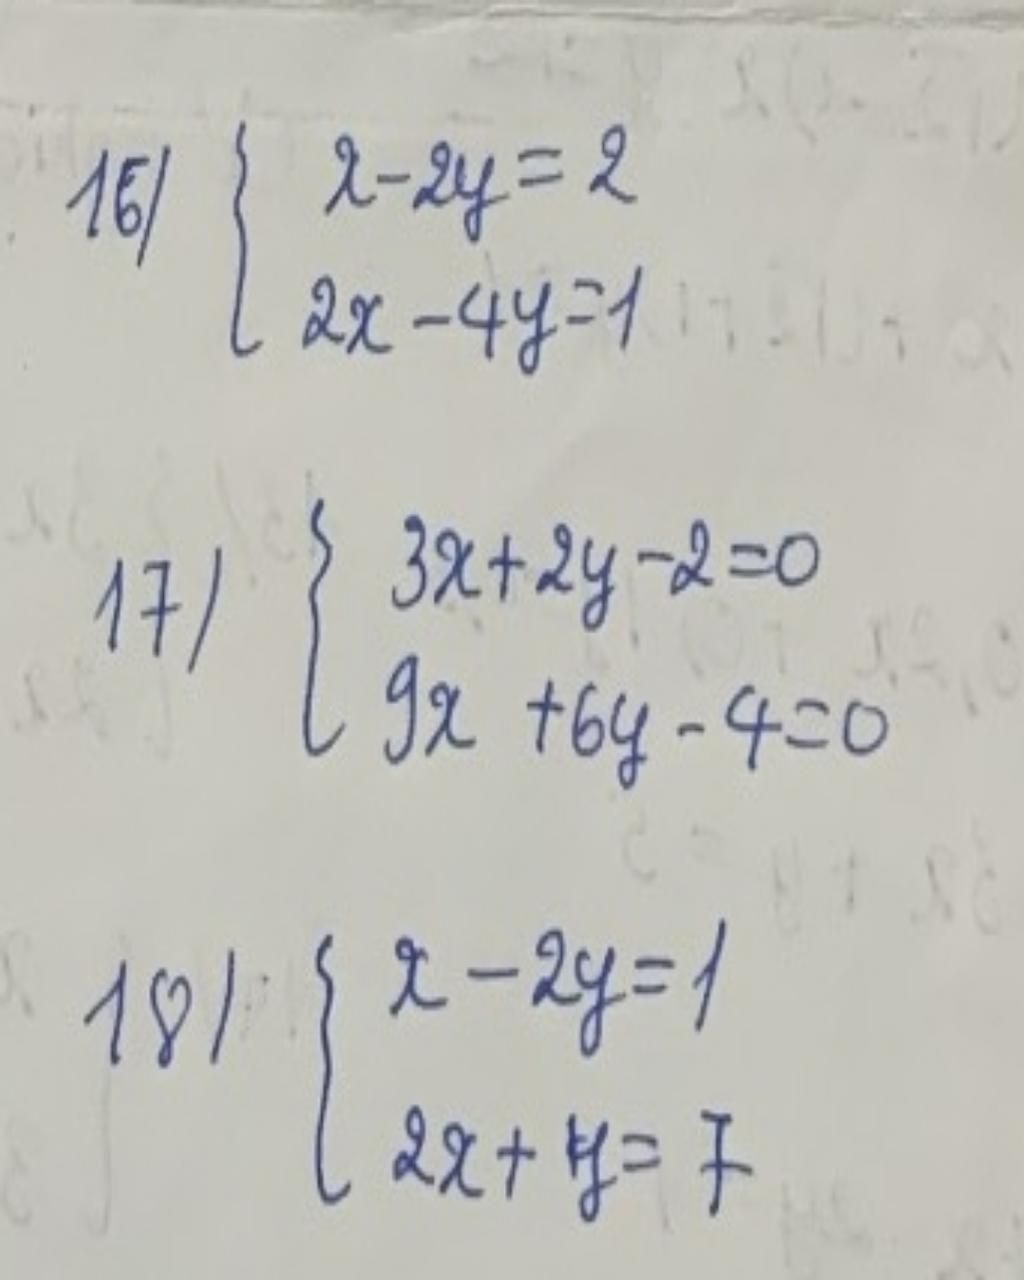 16/ { x-2y=2
2x-4y=1
17/ { 3x+2y-2=0
9x+6y-4=0
18/ { x-2y=1
2x+y=7